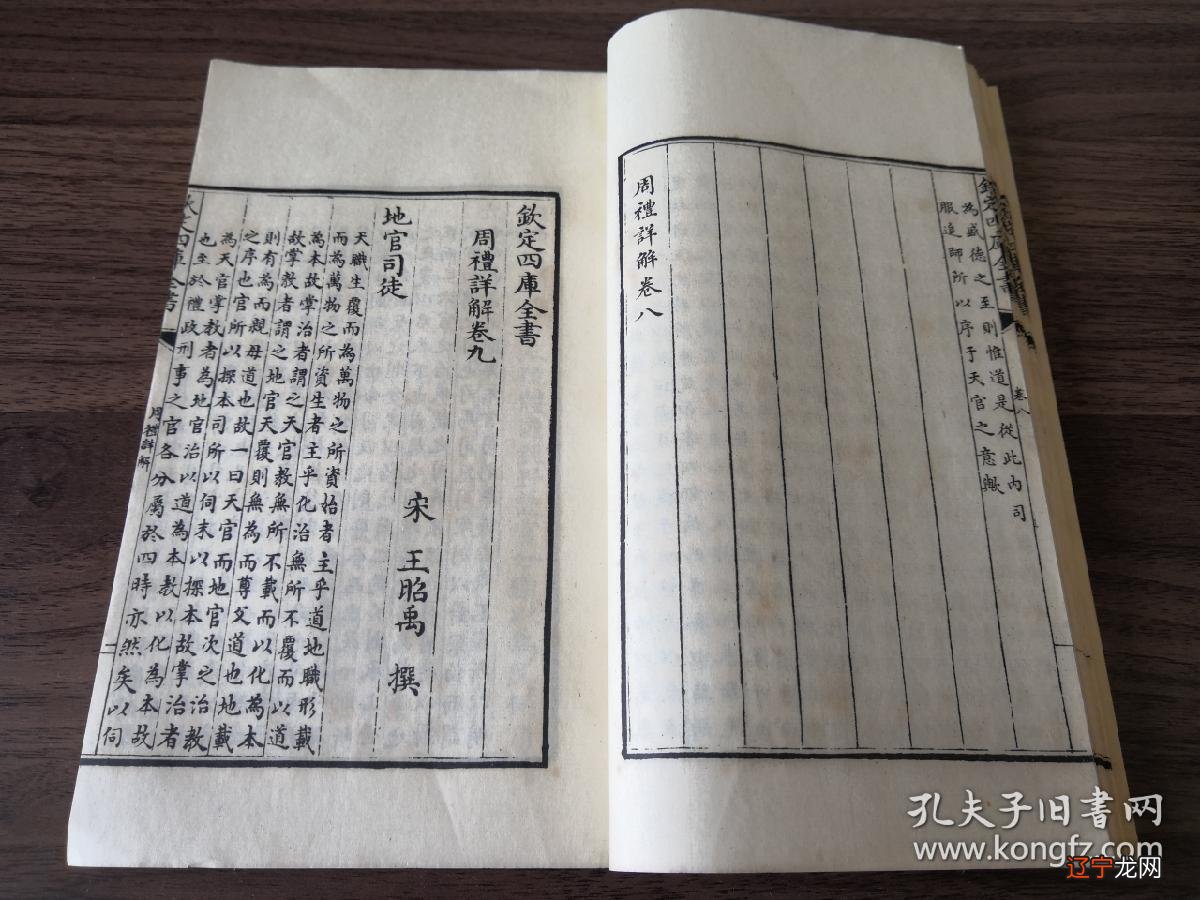 欽定四庫全書
卷八
為盛德之至則惟道是從此內司
服追師所以序于天官之意歟
周禮詳解卷八
欽定四庫全書
周禮詳解卷九
宋 王昭禹 撰
地官司徒
天職生覆而為萬物之所資始者主乎道地職形載
而為萬物之所資生者主乎化治無所不覆而以道
為本故掌治者謂之天官教無所不載而以化為本
故掌教者謂之地官天覆則無為而尊父道也地載
則有為而親母道也故一曰天官而地官次之治教
之序也官所以探本司所以伺末以探本故掌治者
為天官掌教者為地官治以道為本教以化為本故
也至於禮政刑事之官各分屬於四時亦然矣以伺
四庫全書
周禮詳解
一
孔夫子旧书网
www.kongfz.com
辽宁龙网